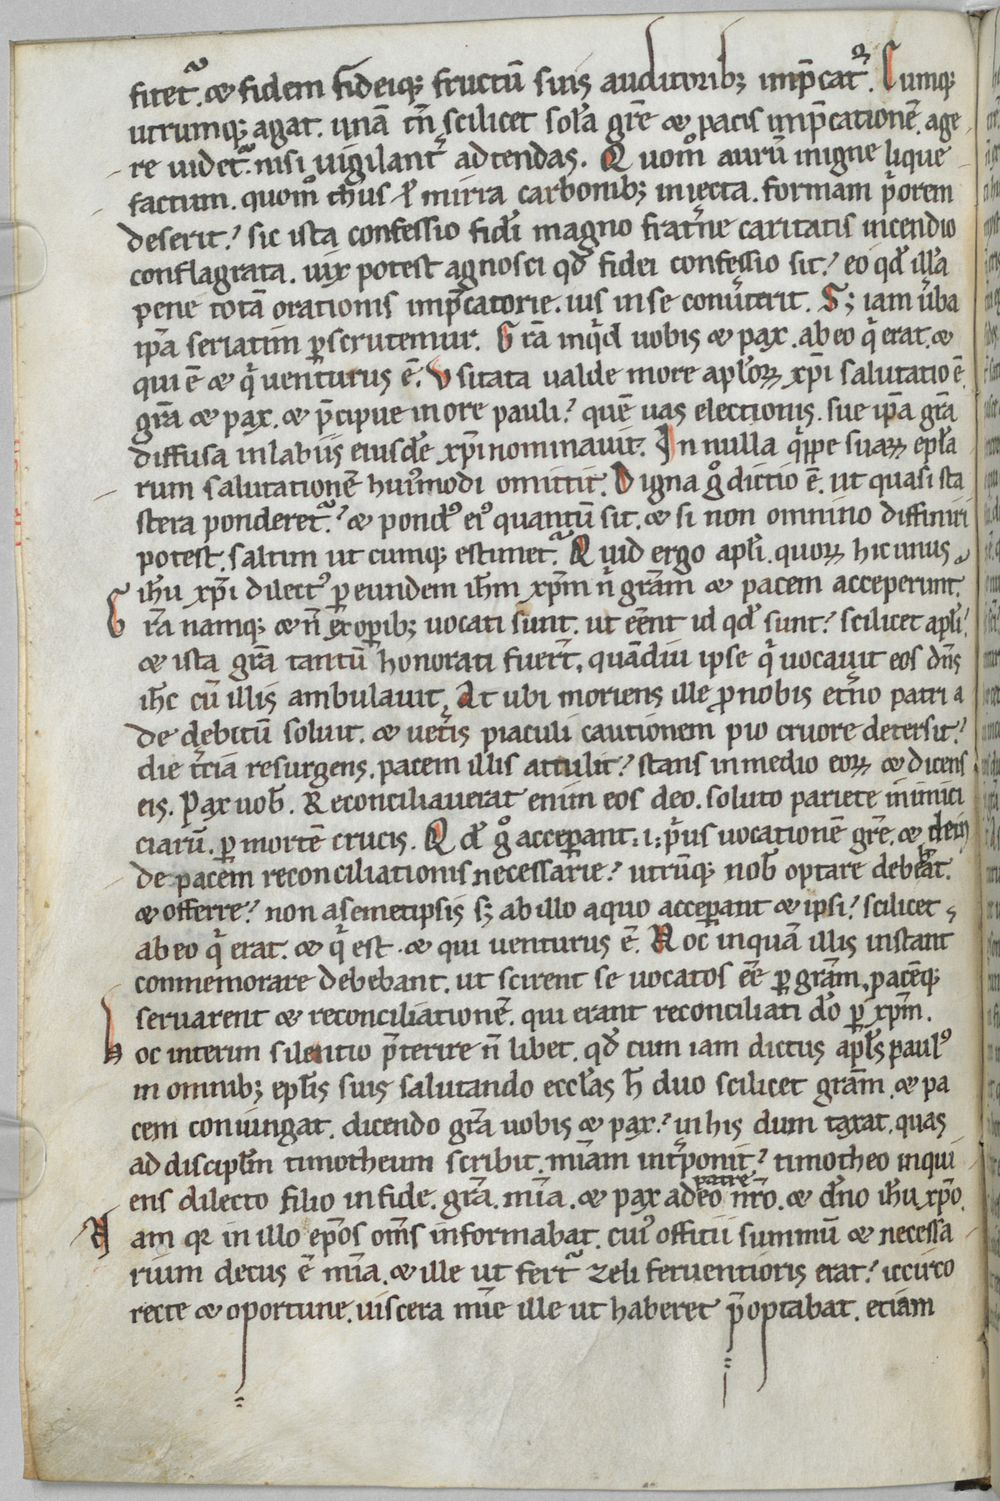 fitet᷑. & fidem fideiq; fructū suis auditorib; imp̄cat᷑. Cumq;
utrumq; agat. unā tn̄ scilicet solā grē & pacis imp̄cationē. age
re uidet᷑. nisi uigilant̉ adtendas. Quom̊ aurū in igne lique
factum. quom̊ thus ł mirra carbonib; iniecta. formam p̍orem
deserit? sic ista confessio fidei magno frat̉ne caritatis incendio
conflagrata. uix potest agnosci qđ fidei confessio sit? eo qđ illa
pene totā orationis imp̄catorie. ius in se conủterit. S; iam ủba
ip̄a seriatim ꝑscrutemur. Grā inq̍d uobis & pax. ab eo q̍ erat. &
qui ē & q̍ uenturus ē. Vsitata ualde more apłoꝝ xp̄i salutatio ē
grā & pax. & p̄cipue more pauli? quē uas electionis. sue ip̄a grā
diffusa in labiis eiusdē xp̄i nominauit. In nulla q̍ppe suaꝝ epła
rum salutationē hui᾿modi omittit. Digna g̊ dictio ē. ut quasi sta
stera ponderet᷑? & pond᾿ ei᾿ quantū sit. & si non omnino diffiniri
potest. saltim ut cumq; estimet᷑. Quid ergo apłi. quoꝝ hic unus
ih̄u xp̄i dilect᾿ ꝑ eundem ih̄m xp̄m n̄ grām & pacem acceperunt?
Grā namq; & n̄ ex oꝑib; uocati sunt. ut eēnt id qđ sunt? scilicet apłi?
& ista grā tantū honorati fuer̄t, quādiu ipse q̍ uocauit eos dn̄s
ih̄c cū illis ambulauit. At ubi moriens ille ꝓ nobis et̉no patri a
de debitū soluit. & uet̉is piaculi cautionem pio cruore detersit?
die t̉cia resurgens. pacem illis attulit? stans in medio eoꝝ & dicens
eis. Pax uob̄. Reconciliauerat enim eos deo. soluto pariete inimici
ciarū. ꝑ mortē crucis. Qđ g̊ acceꝑant. ı. p̍us uocationē grē. & dein
de pacem reconciliationis necessarie? utrūq; nob̄ optare debebant.
& offerre? non a semetipsis s; ab illo a quo acceꝑant & ipsi? scilicet
ab eo q̍ erat. & q̍ est. & qui uenturus ē. Hoc inquā illis instant
conmemorare debebant. ut scirent se uocatos eē ꝑ grām, pacēq;
seruarent & reconciliationē. qui erant reconciliati dō ꝑ xp̄m.
Hoc interim silentio p̄terire n̄ libet. qđ cum iam dictus apłs paul᾿
in omnib; epłis suis salutando eccłas h̄ duo scilicet grām. & pa
cem coniungat. dicendo grā uobis & pax? in his dum taxat. quas
ad discipłm timotheum scribit. mīam int̉ponit? timotheo inqui
ens dilecto filio in fide. grā. mīa. & pax a deo patre nr̄o. & dn̄o ih̄u xp̄o.
Nam qr in illo ep̄os om̄s informabat. cui᾿ officii summū & necessa
rium decus ē mīa. & ille ut fert᷑ zeli feruentioris erat? iccirco
recte & oportune. uiscera mīe ille ut haberet p̄optabat. etiam